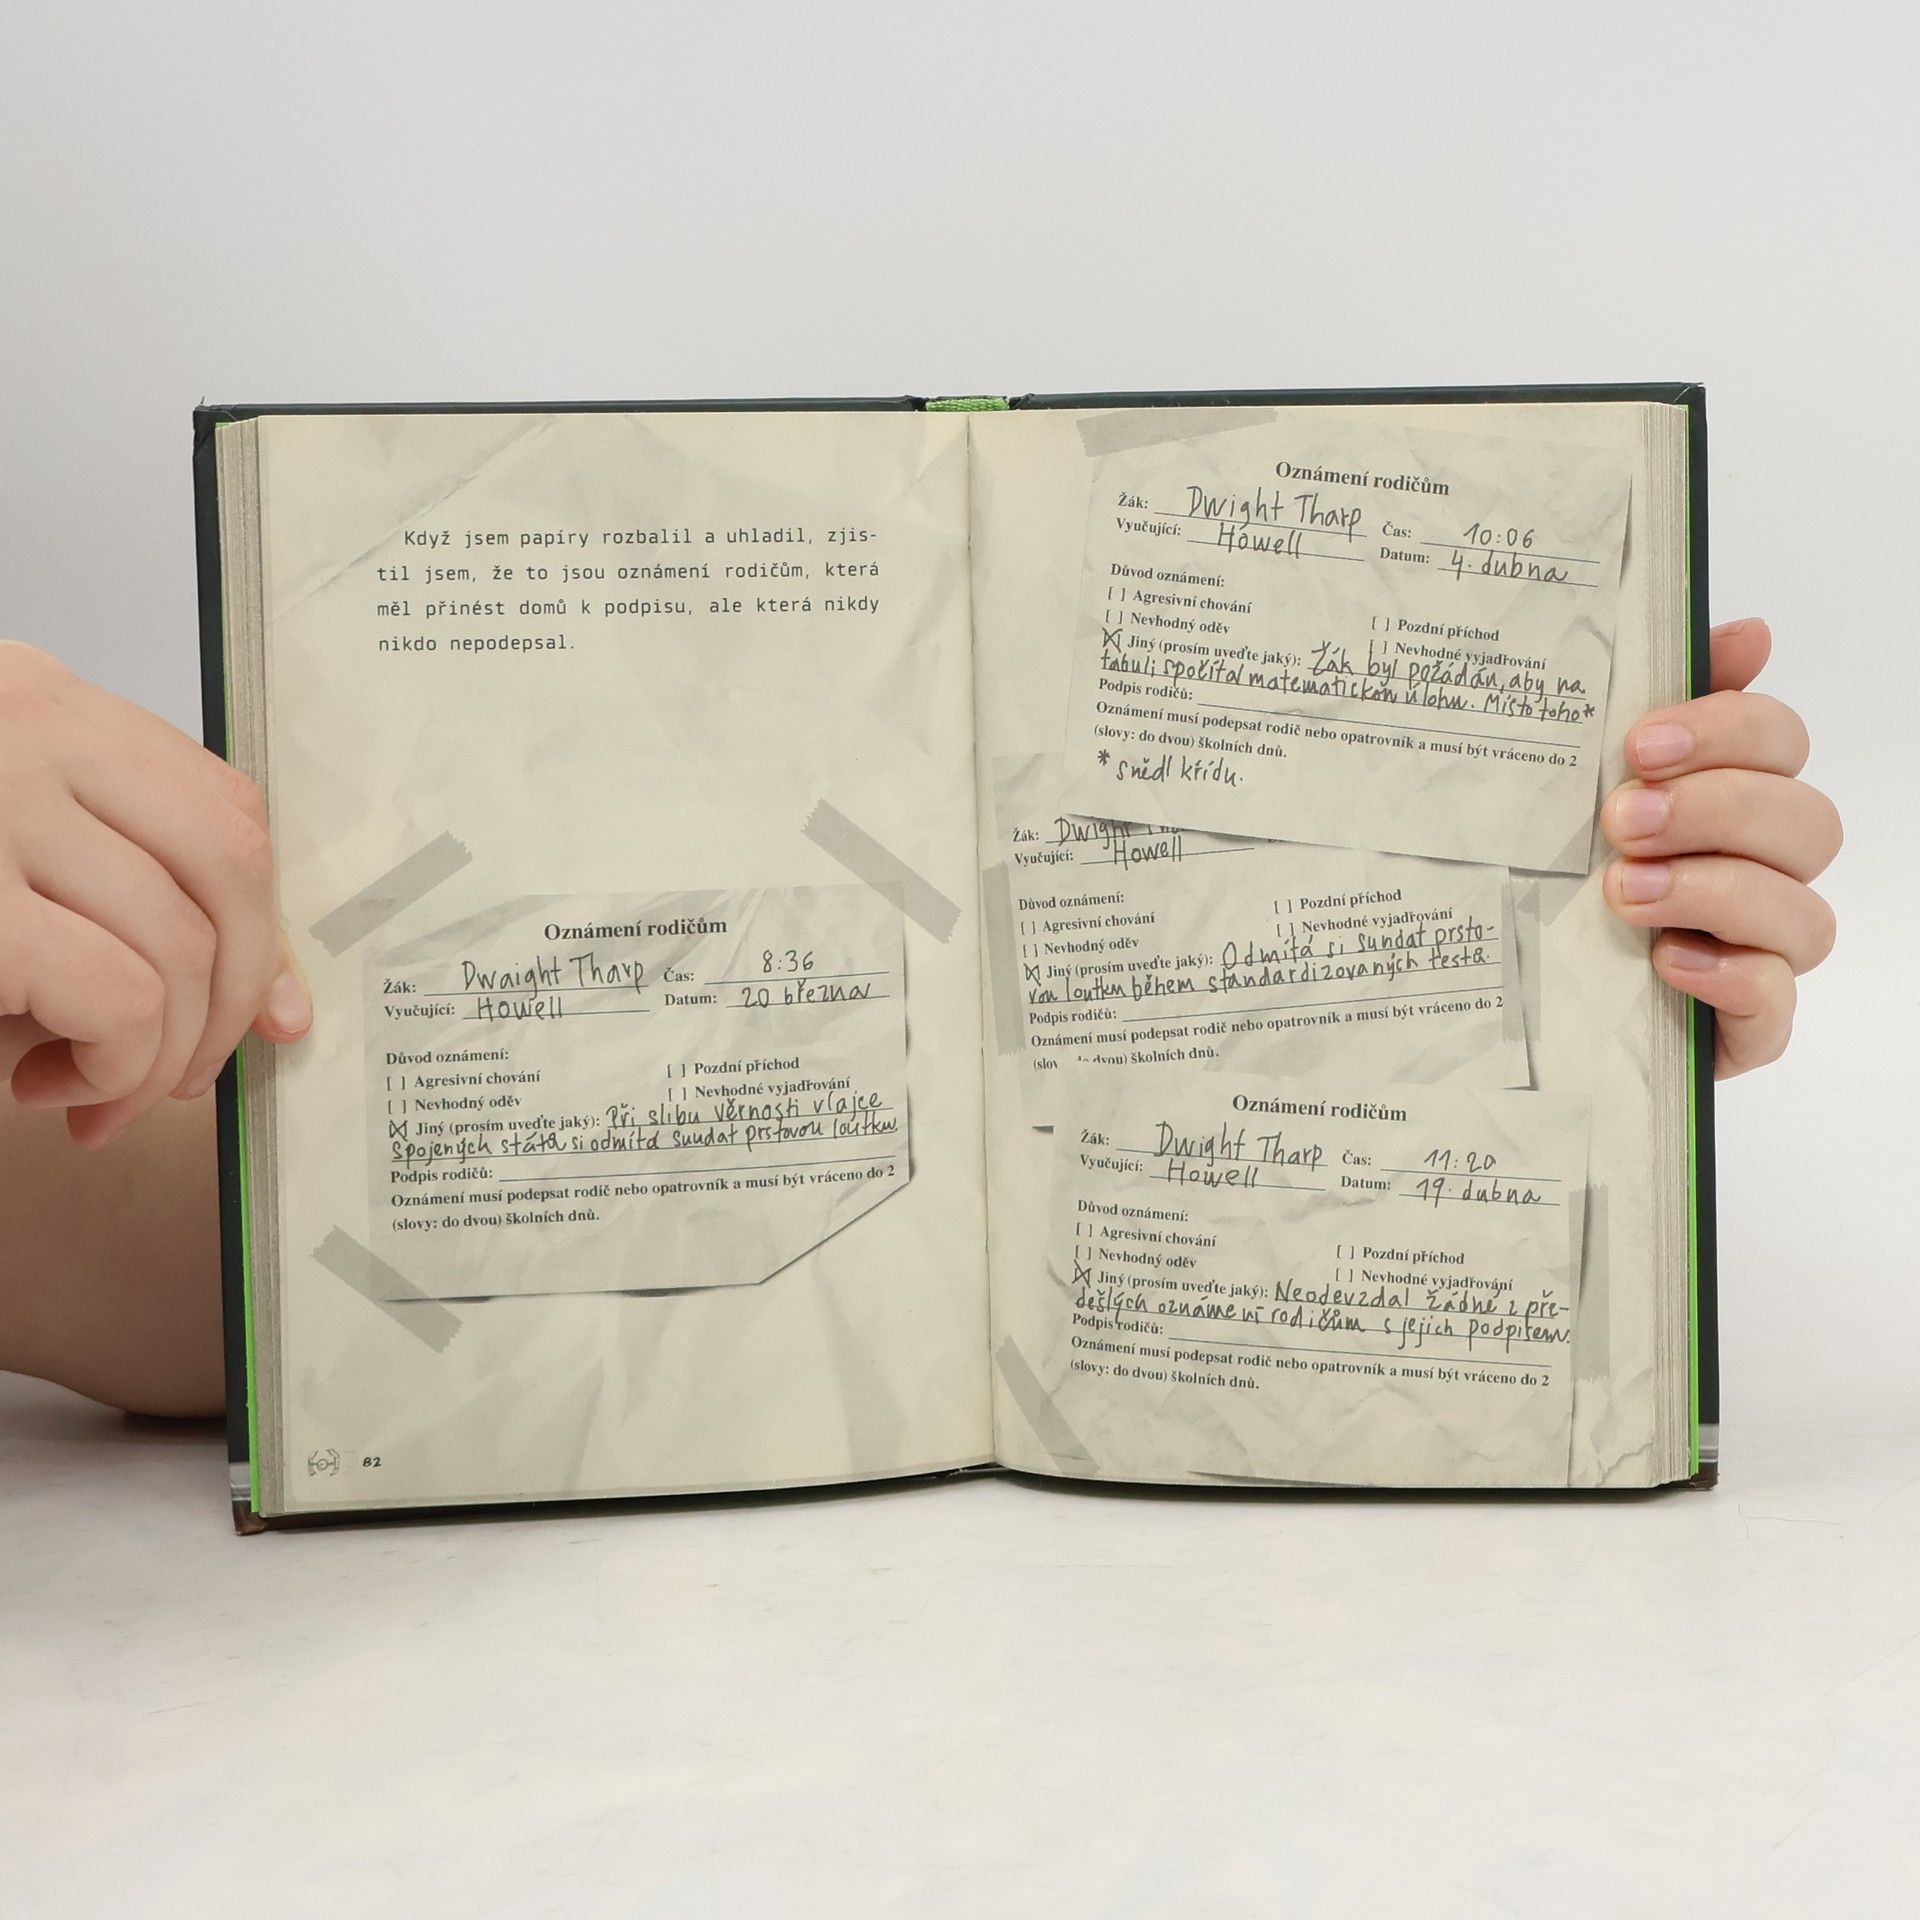 Když jsem papíry rozbalil a uhladil, zjis-
til jsem, že to jsou oznámení rodičům, která
měl přinést domů k podpisu, ale která nikdy
nikdo nepodepsal.
Oznámení rodičům
Žák: Dwaight Tharp Čas: 8:36
Vyučující: Howell Datum: 20 března
Důvod oznámení:
[ ] Agresivní chování [ ] Pozdní příchod
[ ] Nevhodný oděv [ ] Nevhodné vyjadřování
[X] Jiný (prosím uveďte jaký): Při slibu věrnosti vlajce
Spojených států si odmítá sundat prstovou loutku.
Podpis rodičů:
Oznámení musí podepsat rodič nebo opatrovník a musí být vráceno do 2
(slovy: do dvou) školních dnů.
82
Oznámení rodičům
Žák: Dwight Tharp Čas: 10:06
Vyučující: Howell Datum: 4. dubna
Důvod oznámení:
[ ] Agresivní chování [ ] Pozdní příchod
[ ] Nevhodný oděv [ ] Nevhodné vyjadřování
[X] Jiný (prosím uveďte jaký): Žák byl požádán, aby na
tabuli spočítal matematickou úlohu. Místo toho*
Podpis rodičů:
Oznámení musí podepsat rodič nebo opatrovník a musí být vráceno do 2
(slovy: do dvou) školních dnů.
* snědl křídu.
Žák: Dwight
Vyučující: Howell
Důvod oznámení:
[ ] Agresivní chování [ ] Pozdní příchod
[ ] Nevhodný oděv [ ] Nevhodné vyjadřování
[X] Jiný (prosím uveďte jaký): Odmítá si sundat prsto-
vou loutku během standardizovaných testů.
Podpis rodičů:
Oznámení musí podepsat rodič nebo opatrovník a musí být vráceno do 2
(slov do dvou) školních dnů.
Oznámení rodičům
Žák: Dwight Tharp Čas: 11:20
Vyučující: Howell Datum: 19. dubna
Důvod oznámení:
[ ] Agresivní chování [ ] Pozdní příchod
[ ] Nevhodný oděv [ ] Nevhodné vyjadřování
[X] Jiný (prosím uveďte jaký): Neodevzdal žádné z pře-
dešlých oznámení rodičům s jejich podpisem.
Podpis rodičů:
Oznámení musí podepsat rodič nebo opatrovník a musí být vráceno do 2
(slovy: do dvou) školních dnů.